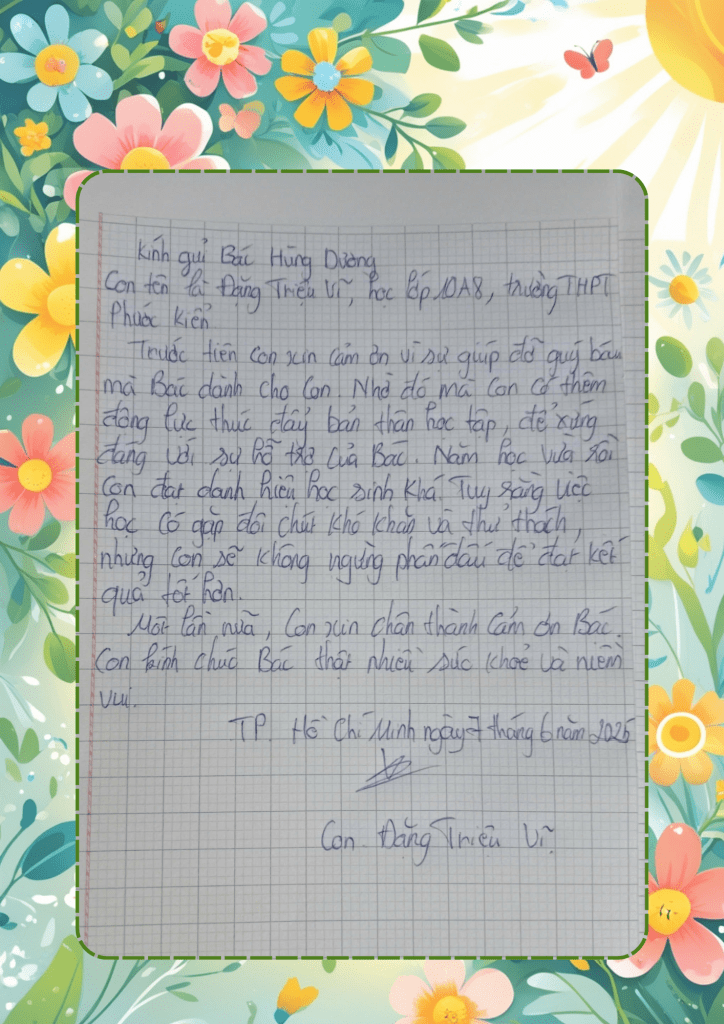 Kính gửi Bác Hùng Dương
Con tên là Đặng Triệu Vĩ, học lớp 10A8, trường THPT
Phước Kiển.
Trước tiên con xin cảm ơn vì sự giúp đỡ quý báu
mà Bác dành cho con. Nhờ đó mà con có thêm
động lực thúc đẩy bản thân học tập, để xứng
đáng với sự hỗ trợ của Bác. Năm học vừa rồi
con đạt danh hiệu học sinh Khá. Tuy rằng việc
học có gặp đôi chút khó khăn và thử thách,
nhưng con sẽ không ngừng phấn đấu để đạt kết
quả tốt hơn.
Một lần nữa, con xin chân thành cảm ơn Bác.
Con kính chúc Bác thật nhiều sức khoẻ và niềm
vui.
TP. Hồ Chí Minh ngày 7 tháng 6 năm 2025
Con. Đặng Triệu Vĩ